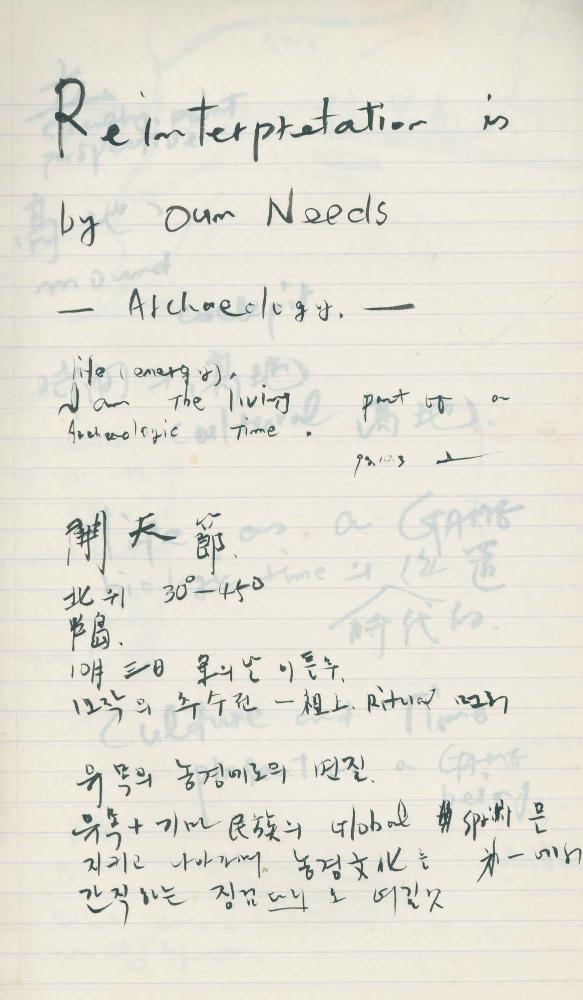 Reinterpretation is
by our Needs
— Archaeology. —
life (energy).
I am the living part of a
Archeologic Time.
92.10.3
開天節.
北위 30°-450
半島.
10月 三日
의 추수전 - 祖上 Ritual
유목의 농경미로의 변질.
유목+기마民族의 Global spirit 믄
지키고 나아가며 농경文化는
간직하는 징검다리로 여길것